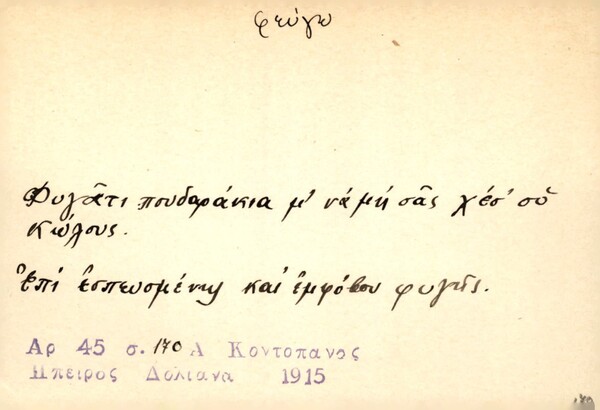 φεύγω
Φυγᾶτι πουδαράκια μ' νά μή σᾶς χέσ' οὗ
κώλους.
Ἐπί ἐσπευσμένης καί ἐμφόβου φυγῆς.
Αρ 45 σ. 170 Α Κοντοπανος
Ηπειρος Δολιανα 1915